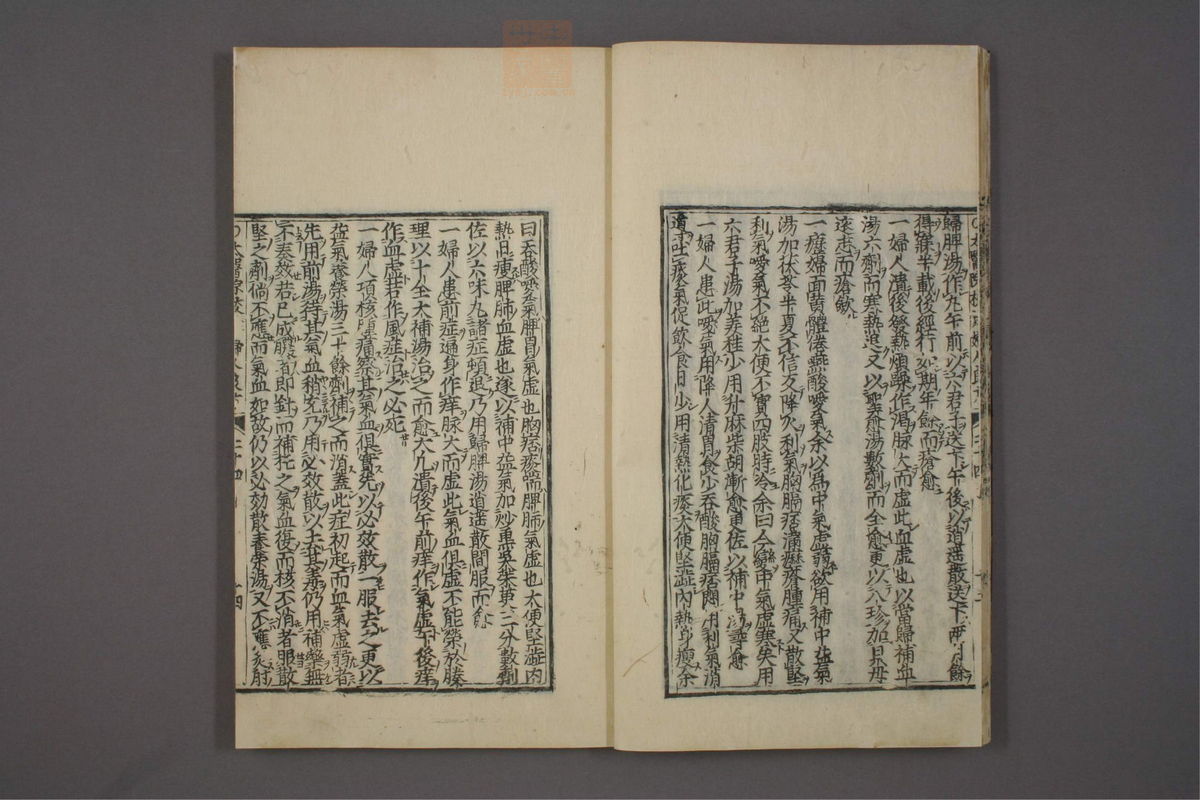 歸脾湯作丸午前以六君子送下午後以逍遙散送下兩月餘
得藥半載後經行如期年餘而瘡愈
一婦人潰後發熱煩躁作渴脉大而虛此血虛也以當歸補血
湯六劑而寒熱退又以聖愈湯數劑而全愈更以八珍加貝母
遠志而瘡歛
一瘧婦面黃體倦燕酸噯氣余以爲中氣虛弱欲用補中益氣
湯加茯苓半夏不信乃降火利氣胸膈痞滿瘧脊腫痛又散堅
利氣噯氣不絕大便不實四肢時冷余曰今變中氣虛寒矣用
六君子湯加姜桂少用升麻柴胡漸愈更佐以補中湯尋愈
一婦人患此噯氣用降火清胃食少吞酸胸膈痞悶用利氣消
道吐痰氣促飲食日少用清熱化痰大便堅澁內熱身瘦余
曰吞酸噯氣脾胃氣虛也胸痞痰喘脾肺氣虛也大便堅澁內
熱身瘦脾肺血虛也遂以補中益氣加炒黑吳茱萸三分數劑
佐以六味丸諸症頓退乃用歸脾湯逍遙散間服而愈
一婦人患前症遍身作痒脉大而虛此氣血俱虛不能榮於腠
理以十全大補湯治之而愈大凡潰後午前痒作氣虛午後痒
作血虛若作風症治之必死
一婦人項核腫痛察其氣血俱實先以必效散一服去之更以
益氣養榮湯三十餘劑補之而消蓋此症初起而血氣虛弱者
先用前湯待其氣血稍充乃用必效散以去其毒仍用補藥無
不奏效若已成膿者即針而補托之氣血復而核不消者服散
堅之劑倘不應而氣血如故仍以必効散養榮湯又不應灸肘